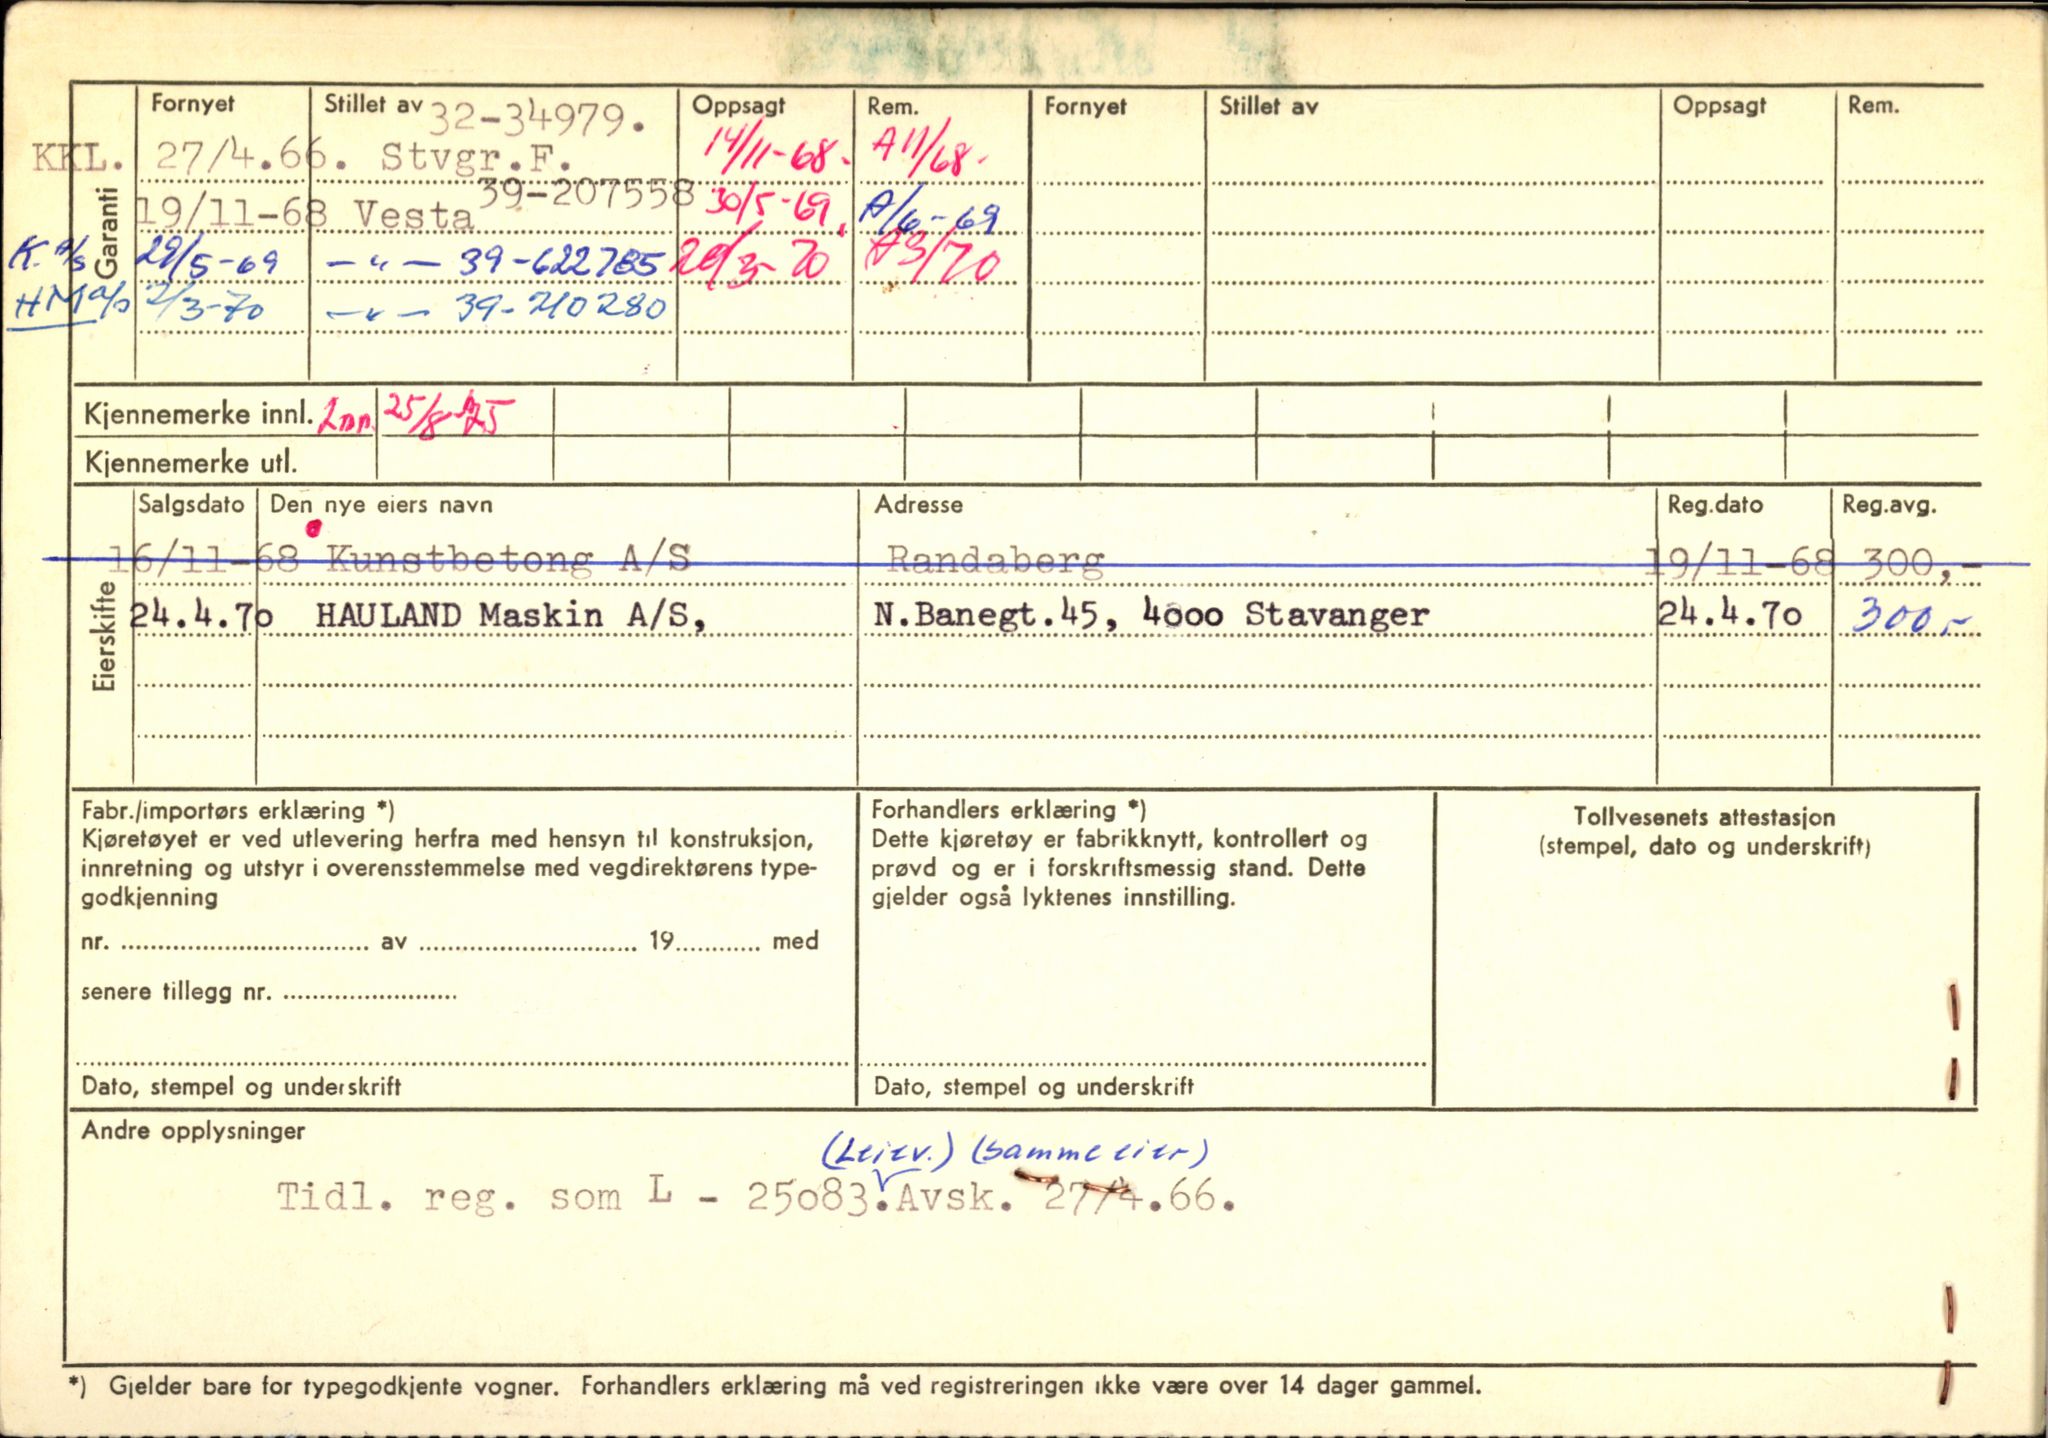 Fornyet Stillet av 32-34979. Oppsagt Rem. Fornyet Stillet av Oppsagt Rem.
KKL. 27/4.66. Stvgr.F. 14/11-68. A11/68.
Garanti
19/11-68 Vesta 39-207558 30/5-69, A/6-69
K. A/S 29/5-69 — " — 39-622785 A3/70
HM a/s 2/3-70 — " — 39-210280
Kjennemerke innl. Inn. 25/8
Kjennemerke utl.
Eierskifte
Salgsdato Den nye eiers navn Adresse Reg.dato Reg.avg.
16/11-68 Kunstbetong A/S Randaberg 19/11-68 300,-
24.4.70 HAULAND Maskin A/S, N.Banegt.45, 4000 Stavanger 24.4.70 300,-
Fabr./importørs erklæring *)
Kjøretøyet er ved utlevering herfra med hensyn til konstruksjon,
innretning og utstyr i overensstemmelse med vegdirektørens type-
godkjenning
nr. av 19 med
senere tillegg nr.
Dato, stempel og underskrift
Forhandlers erklæring *)
Dette kjøretøy er fabrikknytt, kontrollert og
prøvd og er i forskriftsmessig stand. Dette
gjelder også lyktenes innstilling.
Dato, stempel og underskrift
Tollvesenets attestasjon
(stempel, dato og underskrift)
Andre opplysninger
(Leiev.) (samme eier)
Tidl. reg. som L - 25083. Avsk. 27/4.66.
*) Gjelder bare for typegodkjente vogner. Forhandlers erklæring må ved registreringen ikke være over 14 dager gammel.